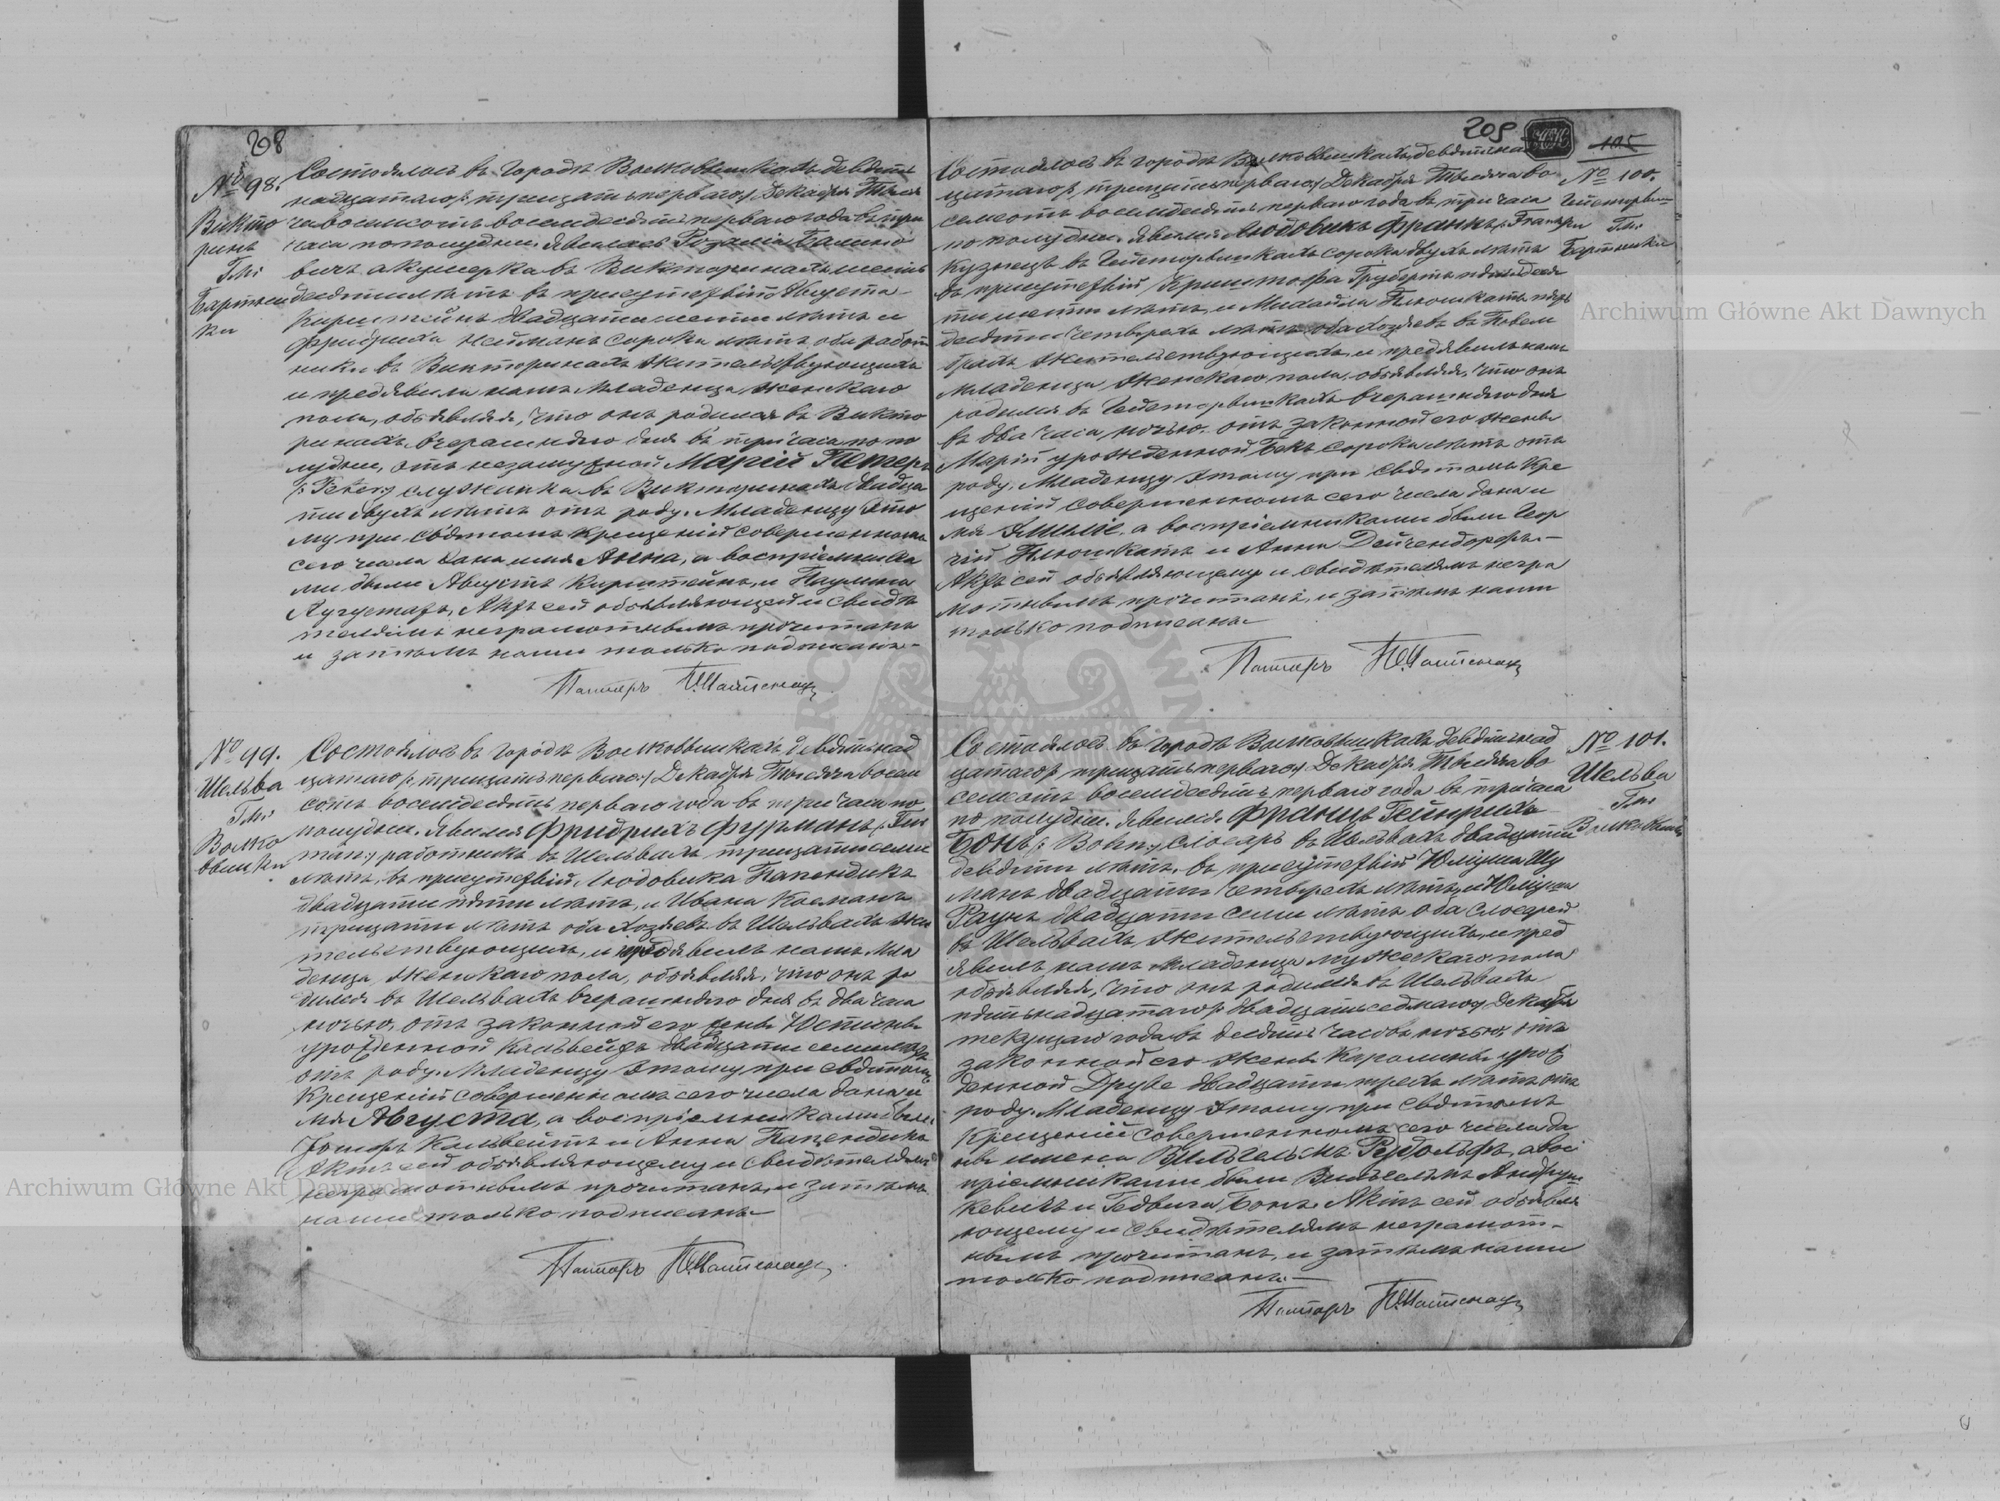 208
№ 98.
Викто
рины
Гм:
Бартни
ки
Состоялось въ городѣ Волковышкахъ девят
надцатаго /: тридцать перваго :/ Декабря Тыся
ча восемьсотъ восемдесятъ перваго года въ три
часа по полудни. Явилась Розалія Балино
вичъ акушерка въ Викторинахъ
десяти лѣтъ въ присутствіи Августа
Кирштейнъ двадцати шести лѣтъ и
Фридриха Нейманъ сорока лѣтъ, оба работ
ники въ Викторинахъ жительствующихъ
и предъявила намъ младенца женскаго
пола, объявляя, что онъ родился въ Викто
ринахъ, вчерашняго дня въ три часа по по
лудни, отъ незамужной Маріи Петеръ
/: Peter :/ служанка въ Викторинахъ двадца
ти двухъ лѣтъ отъ роду. Младенцу это
му при святомъ крещеніи совершенномъ
сего числа дано имя Анна, а воспріемника
ми были Августъ Кирштейнъ, и Паулина
Аугустатъ. Актъ сей объявляющей и свидѣ
телямъ неграмотнымъ прочитанъ
и затѣмъ нами только подписанъ.
Пасторъ
№ 99.
Шельва
Гм:
Волко
вышки
Состоялось въ городѣ Волковышкахъ девятнад
цатаго /: тридцать перваго :/ Декабря Тысяча восем
сотъ восемдесятъ перваго года въ три часа по
полудни. Явился Фридрихъ Фурманъ /: Fur
man :/ работникъ въ Шельвахъ тридцати семи
лѣтъ, въ присутствіи Людовика Папендикъ
двадцати пяти лѣтъ, и Ивана Косманъ
тридцати лѣтъ оба хозяевъ въ Шельвахъ жи
тельствующихъ, и предъявилъ намъ мла
денца женскаго пола, объявляя, что онъ ро
дился въ Шельвахъ вчерашняго дня въ два часа
ночью, отъ законной его жены Юстины
урожденной Кальвейтъ двадцати семи лѣтъ
отъ роду. Младенцу этому при святомъ
крещеніи совершенномъ сего числа дано и
мя Августа, а воспріемниками были
Кальвейтъ и Анна Папендикъ
Актъ сей объявляющему и свидѣтелямъ
неграмотнымъ прочитанъ, и затѣмъ
нами только подписанъ.
Пасторъ
209
105
№ 100.
Гм:
Бартники
Состоялось въ городѣ Волковышкахъ девятнад
цатаго /: тридцать перваго :/ Декабря Тысяча во
семсотъ восемдесятъ перваго года въ три часа
по полудни. Явился Людовикъ Франкъ /: Frank :/
кузнецъ въ сорока двухъ лѣтъ
въ присутствіи Криштофа Грубертъ пятидеся
ти шести лѣтъ, и Михаила Плюшкатъ пять
десяти четырехъ лѣтъ оба хозяевъ въ
жительствующихъ, и предъявилъ намъ
младенца женскаго пола, объявляя, что онъ
родился въ вчерашняго дня
въ два часа ночью отъ законной его жены
Маріи урожденной Бекъ сорока лѣтъ отъ
роду. Младенцу этому при святомъ кре
щеніи совершенномъ сего числа дано и
мя Эмилія, а воспріемниками были Геор
гій Плюшкатъ и Анна Дейчендорфъ.
Актъ сей объявляющему и свидѣтелямъ негра
мотнымъ прочитанъ, и затѣмъ нами
только подписанъ
Пасторъ
№ 101.
Шельва
Гм:
Волковышки
Состоялось въ городѣ Волковышкахъ девятнад
цатаго /: тридцать перваго :/ Декабря Тысяча во
семсотъ восемдесятъ перваго года въ три часа
по полудни. Явился Францъ Гейнрихъ
Бонъ /: Bohn :/ слесарь въ Шельвахъ двадцати
девяти лѣтъ, въ присутствіи Юліуша Шу
манъ двадцати четырехъ лѣтъ, и Юліуша
Раунъ двадцати семи лѣтъ оба слесарей
въ Шельвахъ жительствующихъ, и пред
явилъ намъ младенца мужескаго пола
объявляя, что онъ родился въ Шельвахъ
пятьнадцатаго /: двадцать седьмаго :/ Декабря
текущаго года въ десять часовъ ночью, отъ
законной его жены Каролины урож
денной Друве двадцати трехъ лѣтъ отъ
роду. Младенцу этому при святомъ
крещеніи совершенномъ сего числа да
ны имена Вильгельмъ Рудольфъ, а вос
пріемниками были Вильгельмъ Андруш
кевичъ и Гедвига Бонъ. Актъ сей объявля
ющему и свидѣтелямъ неграмот
нымъ прочитанъ, и затѣмъ нами
только подписанъ.
Пасторъ
Archiwum Główne Akt Dawnych
Archiwum Główne Akt Dawnych